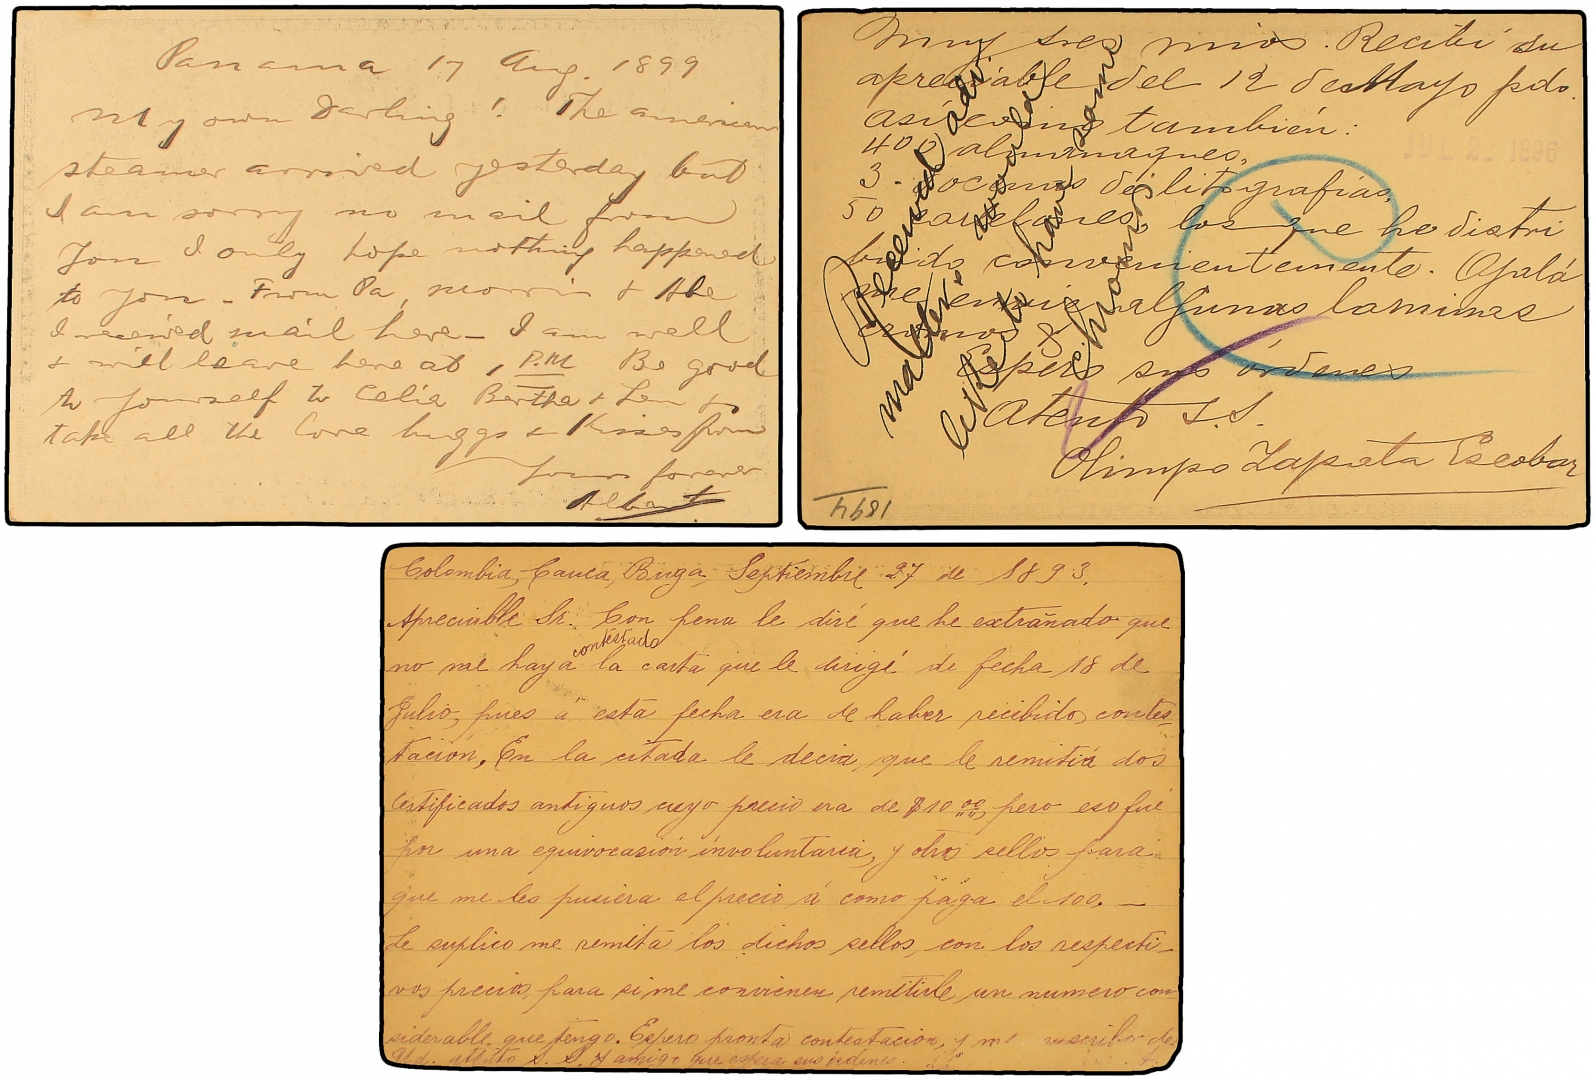 Panama 17 Aug. 1899
My own Darling! The american
steamer arrived yesterday but
I am sorry no mail from
You I only hope nothing happened
to you - From Pa, Morris & Abe
I received mail here - I am well
& will leave here at 1 P.M Be good
to yourself to Celia Bertha & Len &
take all the love huggs & Kisses from
yours forever
Albert
Muy sres mios. Recibí su
apreciable del 12 de Mayo pdo.
así como también:
400 almanaques,
3 docenas de litografías,
50 cartelones, los que he distri
buido convenientemente. Ojalá
me envie algunas laminas
cromos &
Espero sus órdenes
Atento S.S.
Olimpo Zapata Escobar
Received adv
matter. would
like to have some
chromos
JUL 2. 1896
1894
Colombia, Cauca, Buga, Septiembre 27 de 1893.
Apreciable Sr. Con pena le diré que he extrañado que
no me haya contestado la carta que le dirigé de fecha 18 de
Julio, pues á esta fecha era de haber recibido contes-
tación. En la citada le decia, que le remitiá dos
certificados antiguos cuyo precio era de $10 00, pero eso fué
por una equivocasión involuntaria, y otros sellos para
que me les pusiera el precio á como paga el 100. —
Le suplico me remita los dichos sellos, con los respecti-
vos precios, para si me convienen remitirle un numero con
siderable que tengo. Espero pronta contestacion, y me suscribo de
Ud. attento S. S. y amigo que espera sus ordenes.